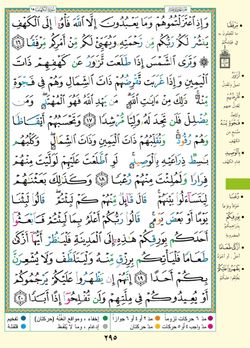 وَإِذِ ٱعْتَزَلْتُمُوهُمْ وَمَا يَعْبُدُونَ إِلَّا ٱللَّهَ فَأْوُۥٓا۟ إِلَى ٱلْكَهْفِ
يَنشُرْ لَكُمْ رَبُّكُم مِّن رَّحْمَتِهِۦ وَيُهَيِّئْ لَكُم مِّنْ أَمْرِكُم مِّرْفَقًا ١٦
۞ وَتَرَى ٱلشَّمْسَ إِذَا طَلَعَت تَّزَٰوَرُ عَن كَهْفِهِمْ ذَاتَ
ٱلْيَمِينِ وَإِذَا غَرَبَت تَّقْرِضُهُمْ ذَاتَ ٱلشِّمَالِ وَهُمْ فِى فَجْوَةٍ
مِّنْهُ ۚ ذَٰلِكَ مِنْ ءَايَٰتِ ٱللَّهِ ۗ مَن يَهْدِ ٱللَّهُ فَهُوَ ٱلْمُهْتَدِ ۖ وَمَن
يُضْلِلْ فَلَن تَجِدَ لَهُۥ وَلِيًّا مُّرْشِدًا ١٧ وَتَحْسَبُهُمْ أَيْقَاظًا
وَهُمْ رُقُودٌ ۚ وَنُقَلِّبُهُمْ ذَاتَ ٱلْيَمِينِ وَذَاتَ ٱلشِّمَالِ ۖ
وَكَلْبُهُم بَٰسِطٌ ذِرَاعَيْهِ بِٱلْوَصِيدِ ۚ لَوِ ٱطَّلَعْتَ عَلَيْهِمْ لَوَلَّيْتَ مِنْهُمْ
فِرَارًا وَلَمُلِئْتَ مِنْهُمْ رُعْبًا ١٨ وَكَذَٰلِكَ بَعَثْنَٰهُمْ
لِيَتَسَآءَلُوا۟ بَيْنَهُمْ ۚ قَالَ قَآئِلٌ مِّنْهُمْ كَمْ لَبِثْتُمْ ۖ قَالُوا۟ لَبِثْنَا
يَوْمًا أَوْ بَعْضَ يَوْمٍ ۚ قَالُوا۟ رَبُّكُمْ أَعْلَمُ بِمَا لَبِثْتُمْ فَٱبْعَثُوٓا۟
أَحَدَكُم بِوَرِقِكُمْ هَٰذِهِۦٓ إِلَى ٱلْمَدِينَةِ فَلْيَنظُرْ أَيُّهَآ أَزْكَىٰ
طَعَامًا فَلْيَأْتِكُم بِرِزْقٍ مِّنْهُ وَلْيَتَلَطَّفْ وَلَا يُشْعِرَنَّ
بِكُمْ أَحَدًا ١٩ إِنَّهُمْ إِن يَظْهَرُوا۟ عَلَيْكُمْ يَرْجُمُوكُمْ
أَوْ يُعِيدُوكُمْ فِى مِلَّتِهِمْ وَلَن تُفْلِحُوٓا۟ إِذًا أَبَدًا ٢٠
٢٩٥